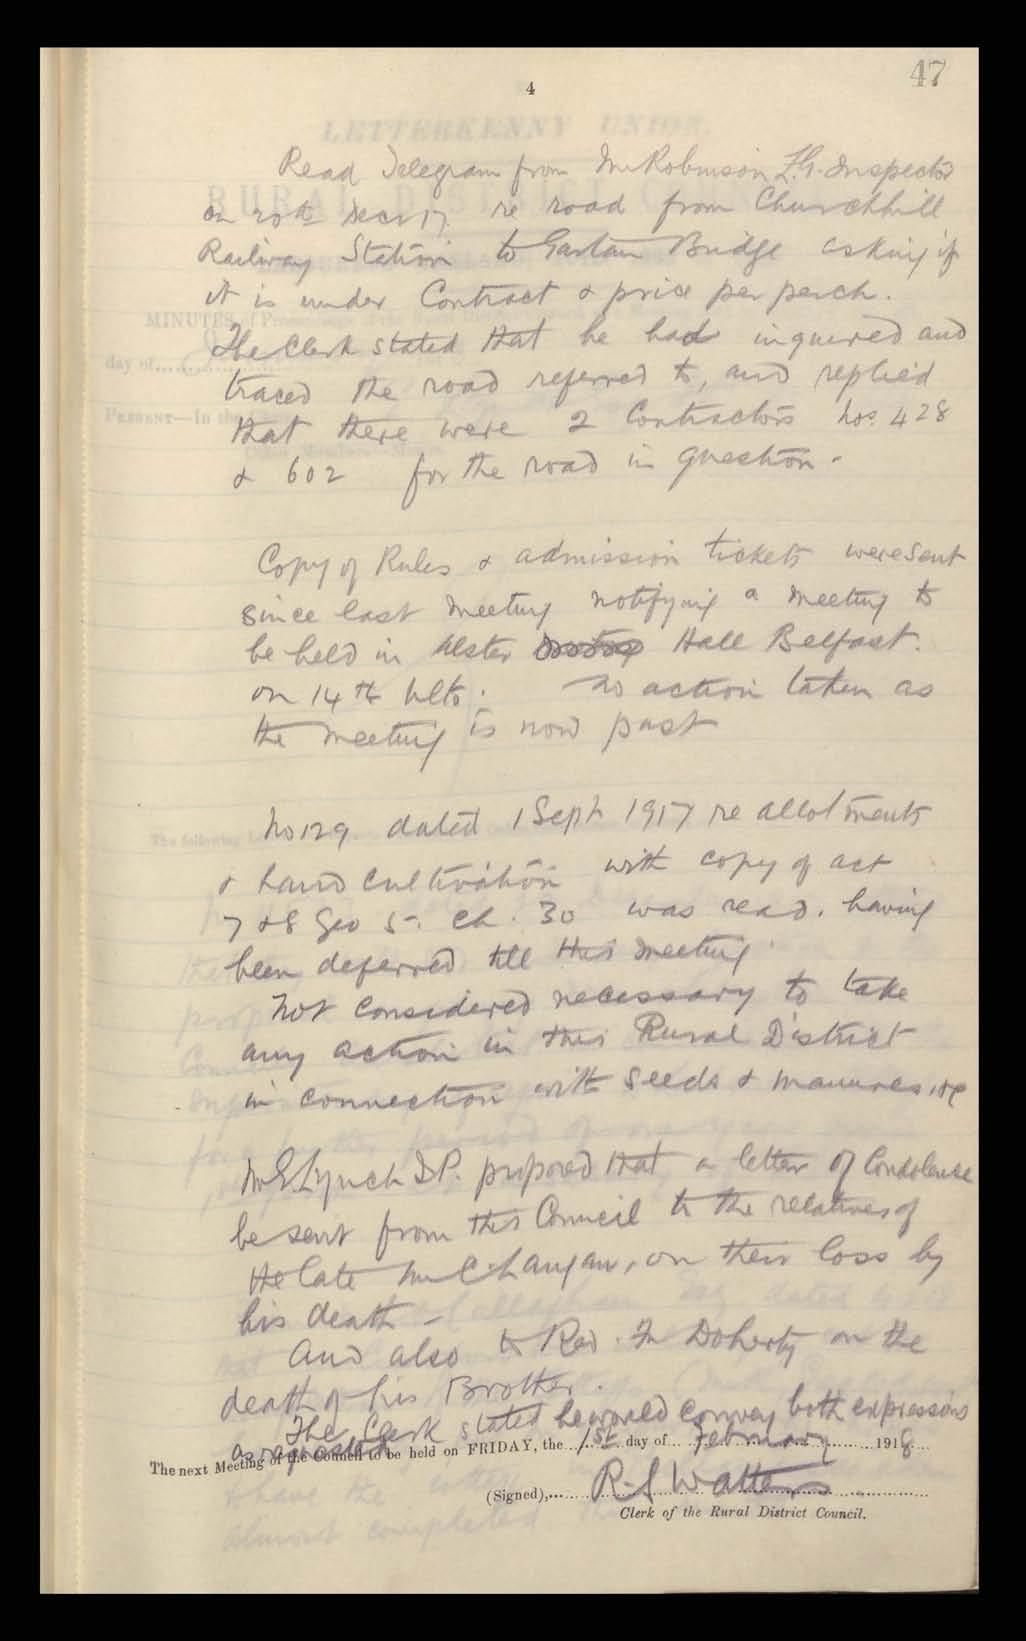 47
4
Read Telegram from Mr Robinson L.G. Inspector
on 20th Decr 17 re road from Churchhill
Railway Station to Gartan Bridge asking if
it is under Contract & price per perch.
The Clerk stated that he had inquired and
traced the road referred to, and replied
that there were 2 Contractors Nos. 428
& 602 for the road in question.
Copy of Rules & admission tickets were sent
since last meeting notifying a meeting to
be held in Ulster Hall Belfast.
on 14th Ulto. No action taken as
the meeting is now past
No 129 dated 1 Sept 1917 re allotments
& land cultivation with copy of act
7 & 8 Geo 5. Ch. 30 was read. having
been deferred till this meeting.
Not considered necessary to take
any action in this Rural District
in connection with seeds & manures, &c
Mr E Lynch D.P. proposed that a letter of Condolence
be sent from this Council to the relatives of
the late Mr C. Langan, on their loss by
his death -
And also to Rev. Fr Doherty on the
death of his Brother.
The Clerk stated he would convey both expressions
as requested
The next Meeting of the Council to be held on FRIDAY, the 1st day of February 1918
(Signed), R. S Watters
Clerk of the Rural District Council.